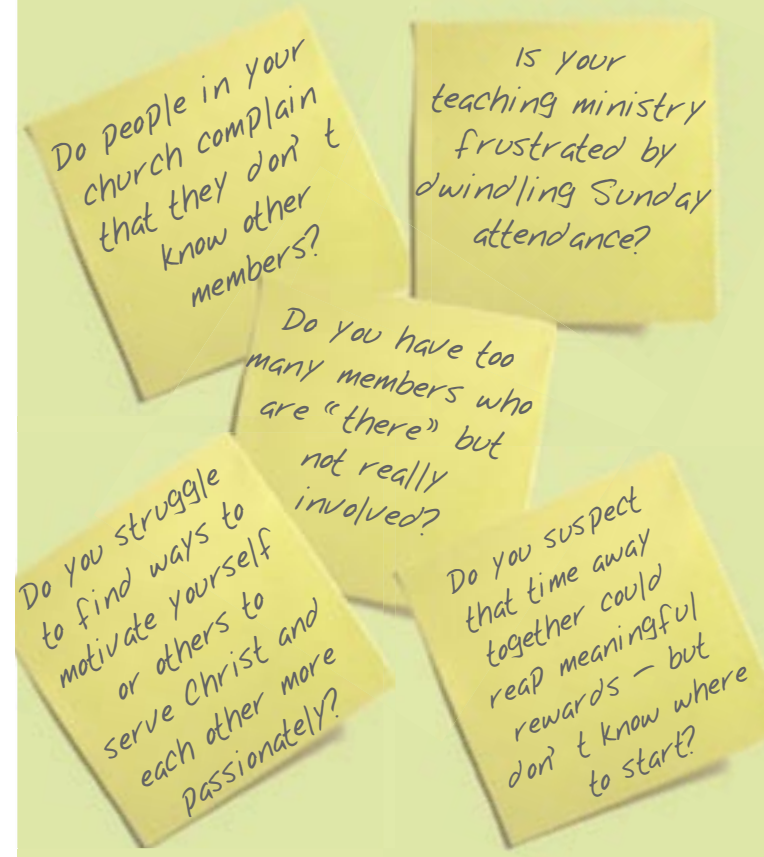 Do people in your
church complain
that they don't
know other
members?
Is your
teaching ministry
frustrated by
dwindling Sunday
attendance?
Do you have too
many members who
are “there” but
not really
involved?
Do you struggle
to find ways to
motivate yourself
or others to
serve Christ and
each other more
passionately?
Do you suspect
that time away
together could
reap meaningful
rewards – but
don't know where
to start?